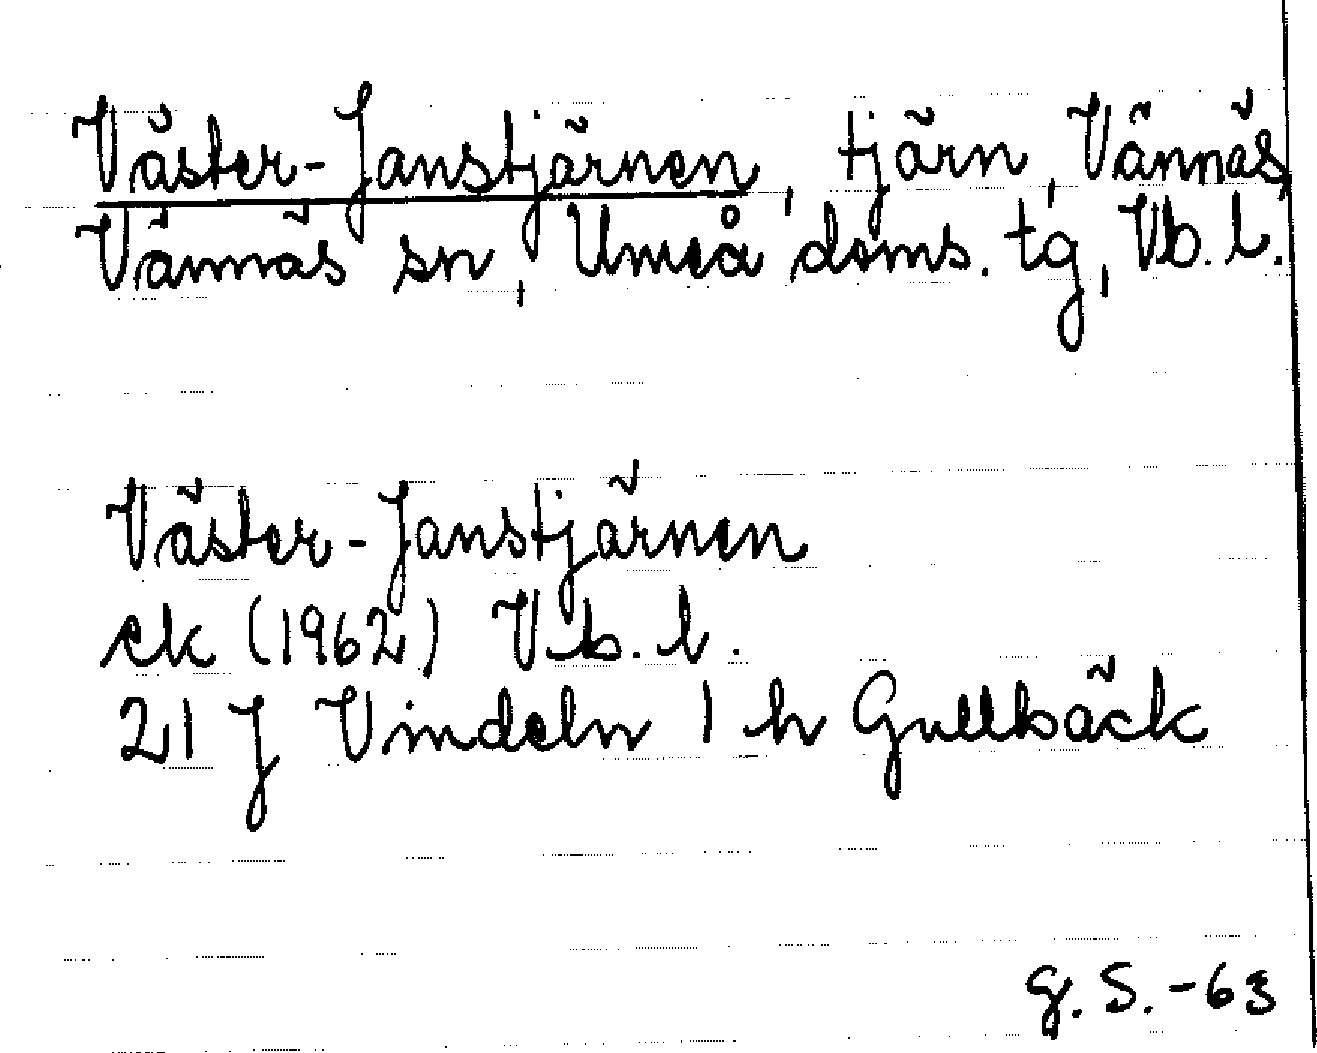 Väster-Janstjärnen, tjärn, Vännäs,
Vännäs sn, Umeå doms. tg, Vb. l.
Väster-Janstjärnen
ek (1962) Vb. l.
21 J Vindeln 1 h Gullbäck
G. S. -63